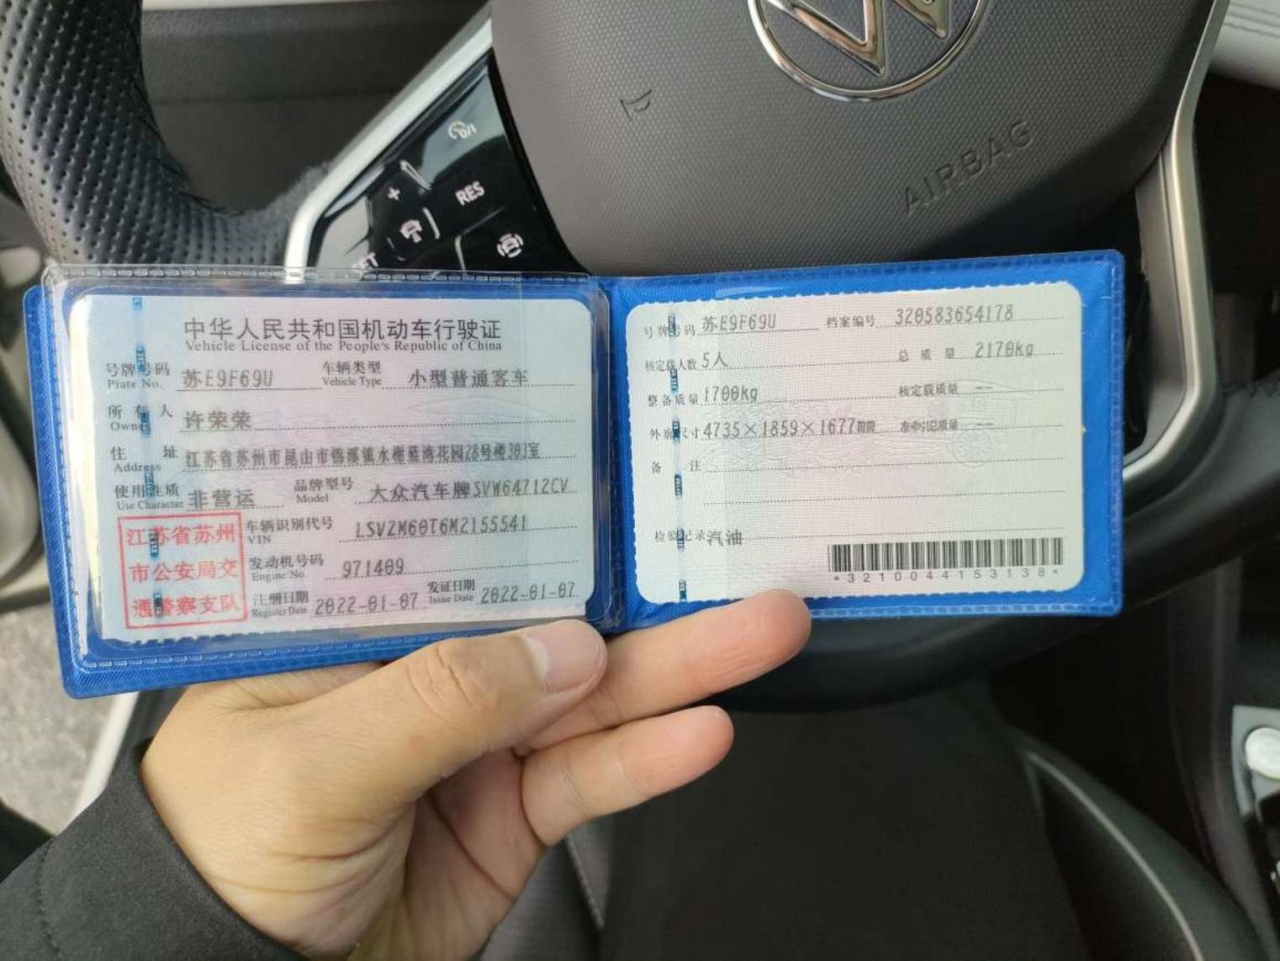 RES
AIRBAG
中华人民共和国机动车行驶证
Vehicle License of the People's Republic of China
号牌号码 苏E9F69U 车辆类型 小型普通客车
Plate No. Vehicle Type
所有人 许荣荣
Owner
住址 江苏省苏州市昆山市锦溪镇水榭蓝湾花园28号楼303室
Address
使用性质 非营运 品牌型号 大众汽车牌SVW64712CV
Use Character Model
江苏省苏州
市公安局交
通警察支队
车辆识别代号 LSV2M60T6M2155541
VIN
发动机号码 971409
Engine No.
注册日期 2022-01-07 发证日期 2022-01-07
Register Date Issue Date
号牌号码 苏E9F69U 档案编号 320583654178
核定载人数 5人 总质量 2170kg
整备质量 1700kg 核定载质量 --
外廓尺寸 4735×1859×1677mm 准牵引总质量 --
备注
检验记录 汽油
*3210044153138*